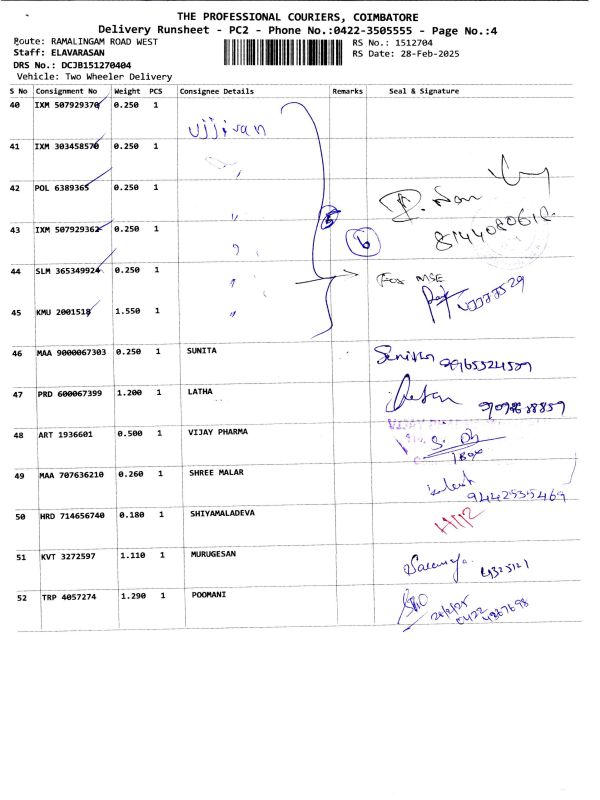 THE PROFESSIONAL COURIERS, COIMBATORE
Delivery Runsheet - PC2 - Phone No.:0422-3505555 - Page No.:4
Route: RAMALINGAM ROAD WEST
RS No.: 1512704
Staff: ELAVARASAN
RS Date: 28-Feb-2025
DRS No.: DCJB151270404
Vehicle: Two Wheeler Delivery
S No Consignment No Weight PCS Consignee Details Remarks Seal & Signature
40 IXM 507929370 0.250 1 Ujjivan
41 IXM 303458570 0.250 1 "
42 POL 6389365 0.250 1 "
43 IXM 507929362 0.250 1 "
44 SLM 365349924 0.250 1 "
45 KMU 2001518 1.550 1 "
6
For MSE
46 MAA 9000067303 0.250 1 SUNITA
47 PRD 600067399 1.200 1 LATHA
48 ART 1936601 0.500 1 VIJAY PHARMA
49 MAA 707636210 0.260 1 SHREE MALAR 9442535469
50 HRD 714656740 0.180 1 SHIYAMALADEVA
51 KVT 3272597 1.110 1 MURUGESAN
52 TRP 4057274 1.290 1 POOMANI
28/2/25
0422
4367698